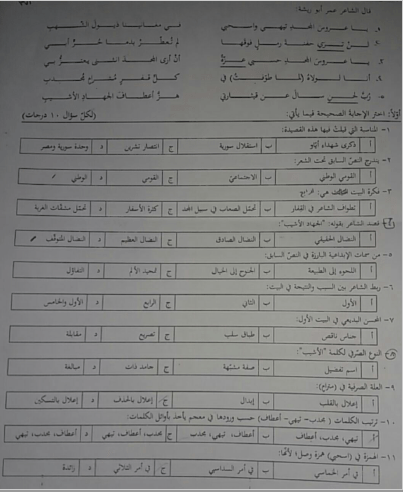 قال الشاعر عمر أبو ريشة:
١- يا عروسَ المجدِ تيهي واسحبي في مغانينا ذيولَ الشُّهبِ
٢- لن تري حفنةَ رملٍ فوقها لم تُعطَّرْ بدما حُرٍّ أبي
٣- يا عروسَ المجدِ حسبي عزَّةً أن أرى المجدَ انثنى يعتزُّ بي
٤- أنا لولاهُ لما طوَّفتُ في كلِّ قفرٍ مترامٍ مجدبِ
٥- ربَّ لحنٍ سالَ عن قيثارتي هزَّ أعطافَ الجهادِ الأشيبِ
أولاً: اختر الإجابة الصحيحة فيما يأتي: (لكل سؤال ١٠ درجات)
١- المناسبة التي قيلت فيها هذه القصيدة:
أ ذكرى شهداء أيار ب استقلال سورية ج انتصار تشرين د وحدة سورية ومصر
٢- يندرج النص السابق تحت الشعر:
أ القومي الوطني ب الاجتماعي ج القومي د الوطني
٣- فكرة البيت الثالث هي:
أ تطواف الشاعر في القفار ب تحمّل الصعاب في سبيل المجد ج كثرة الأسفار د تحمّل مشقّات الغربة
٤- قصد الشاعر بقوله: "الجهاد الأشيب":
أ النضال الحقيقي ب النضال الصادق ج النضال العظيم د النضال المتوقّف
٥- من سمات الإبداعية البارزة في النص السابق:
أ اللجوء إلى الطبيعة ب الجنوح إلى الخيال ج تمجيد الألم د التفاؤل
٦- ربط الشاعر بين السبب والنتيجة في البيت:
أ الأول ب الثاني ج الرابع د الأول والخامس
٧- المحسن البديعي في البيت الأول:
أ جناس ناقص ب طباق سلب ج تصريع د مقابلة
٨- النوع الصّرفي لكلمة "الأشيب":
أ اسم تفضيل ب صفة مشبّهة ج جامد ذات د مبالغة
٩- العلة الصرفية في (مترامٍ):
أ إعلال بالقلب ب إبدال ج إعلال بالحذف د إعلال بالتسكين
١٠- ترتيب الكلمات (مجدب- تيهي- أعطاف) حسب ورودها في معجم يأخذ بأوائل الكلمات:
أ تيهي، مجدب، أعطاف ب أعطاف، تيهي، مجدب ج مجدب، أعطاف، تيهي د أعطاف، مجدب، تيهي
١١- الهمزة في (اسحبي) همزة وصل؛ لأنها:
أ في أمر الخماسي ب في أمر السداسي ج في أمر الثلاثي د زائدة